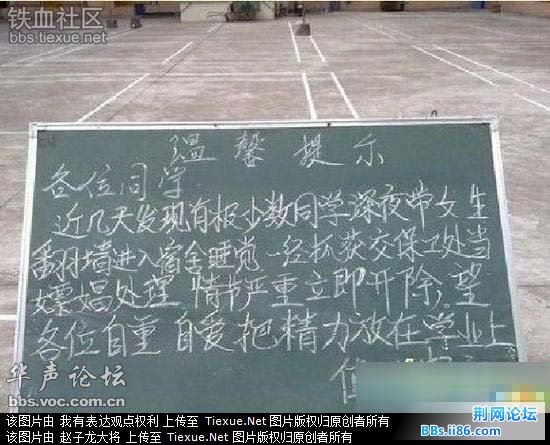 铁血社区
bbs.tiexue.net
温馨提示
各位同学
近几天发现有极少数同学深夜带女生
翻墙进入宿舍睡觉 一经抓获交保卫处当
嫖娼处理 情节严重立即开除,望
各位自重 自爱把精力放在学业上
华声论坛
bbs.voc.com.cn
荆网论坛
Bbs.li86.com
该图片由 我有表达观点权利 上传至 Tiexue.Net 图片版权归原创者所有
该图片由 赵子龙大将 上传至 Tiexue.Net 图片版权归原创者所有